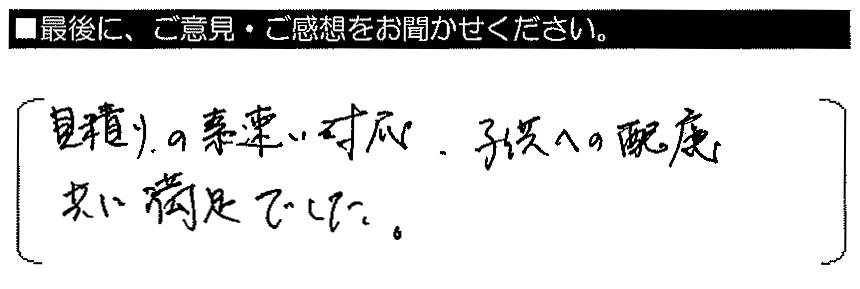 ■最後に、ご意見・ご感想をお聞かせください。
見積りの素速い対応、子供への配慮
共に満足でした。